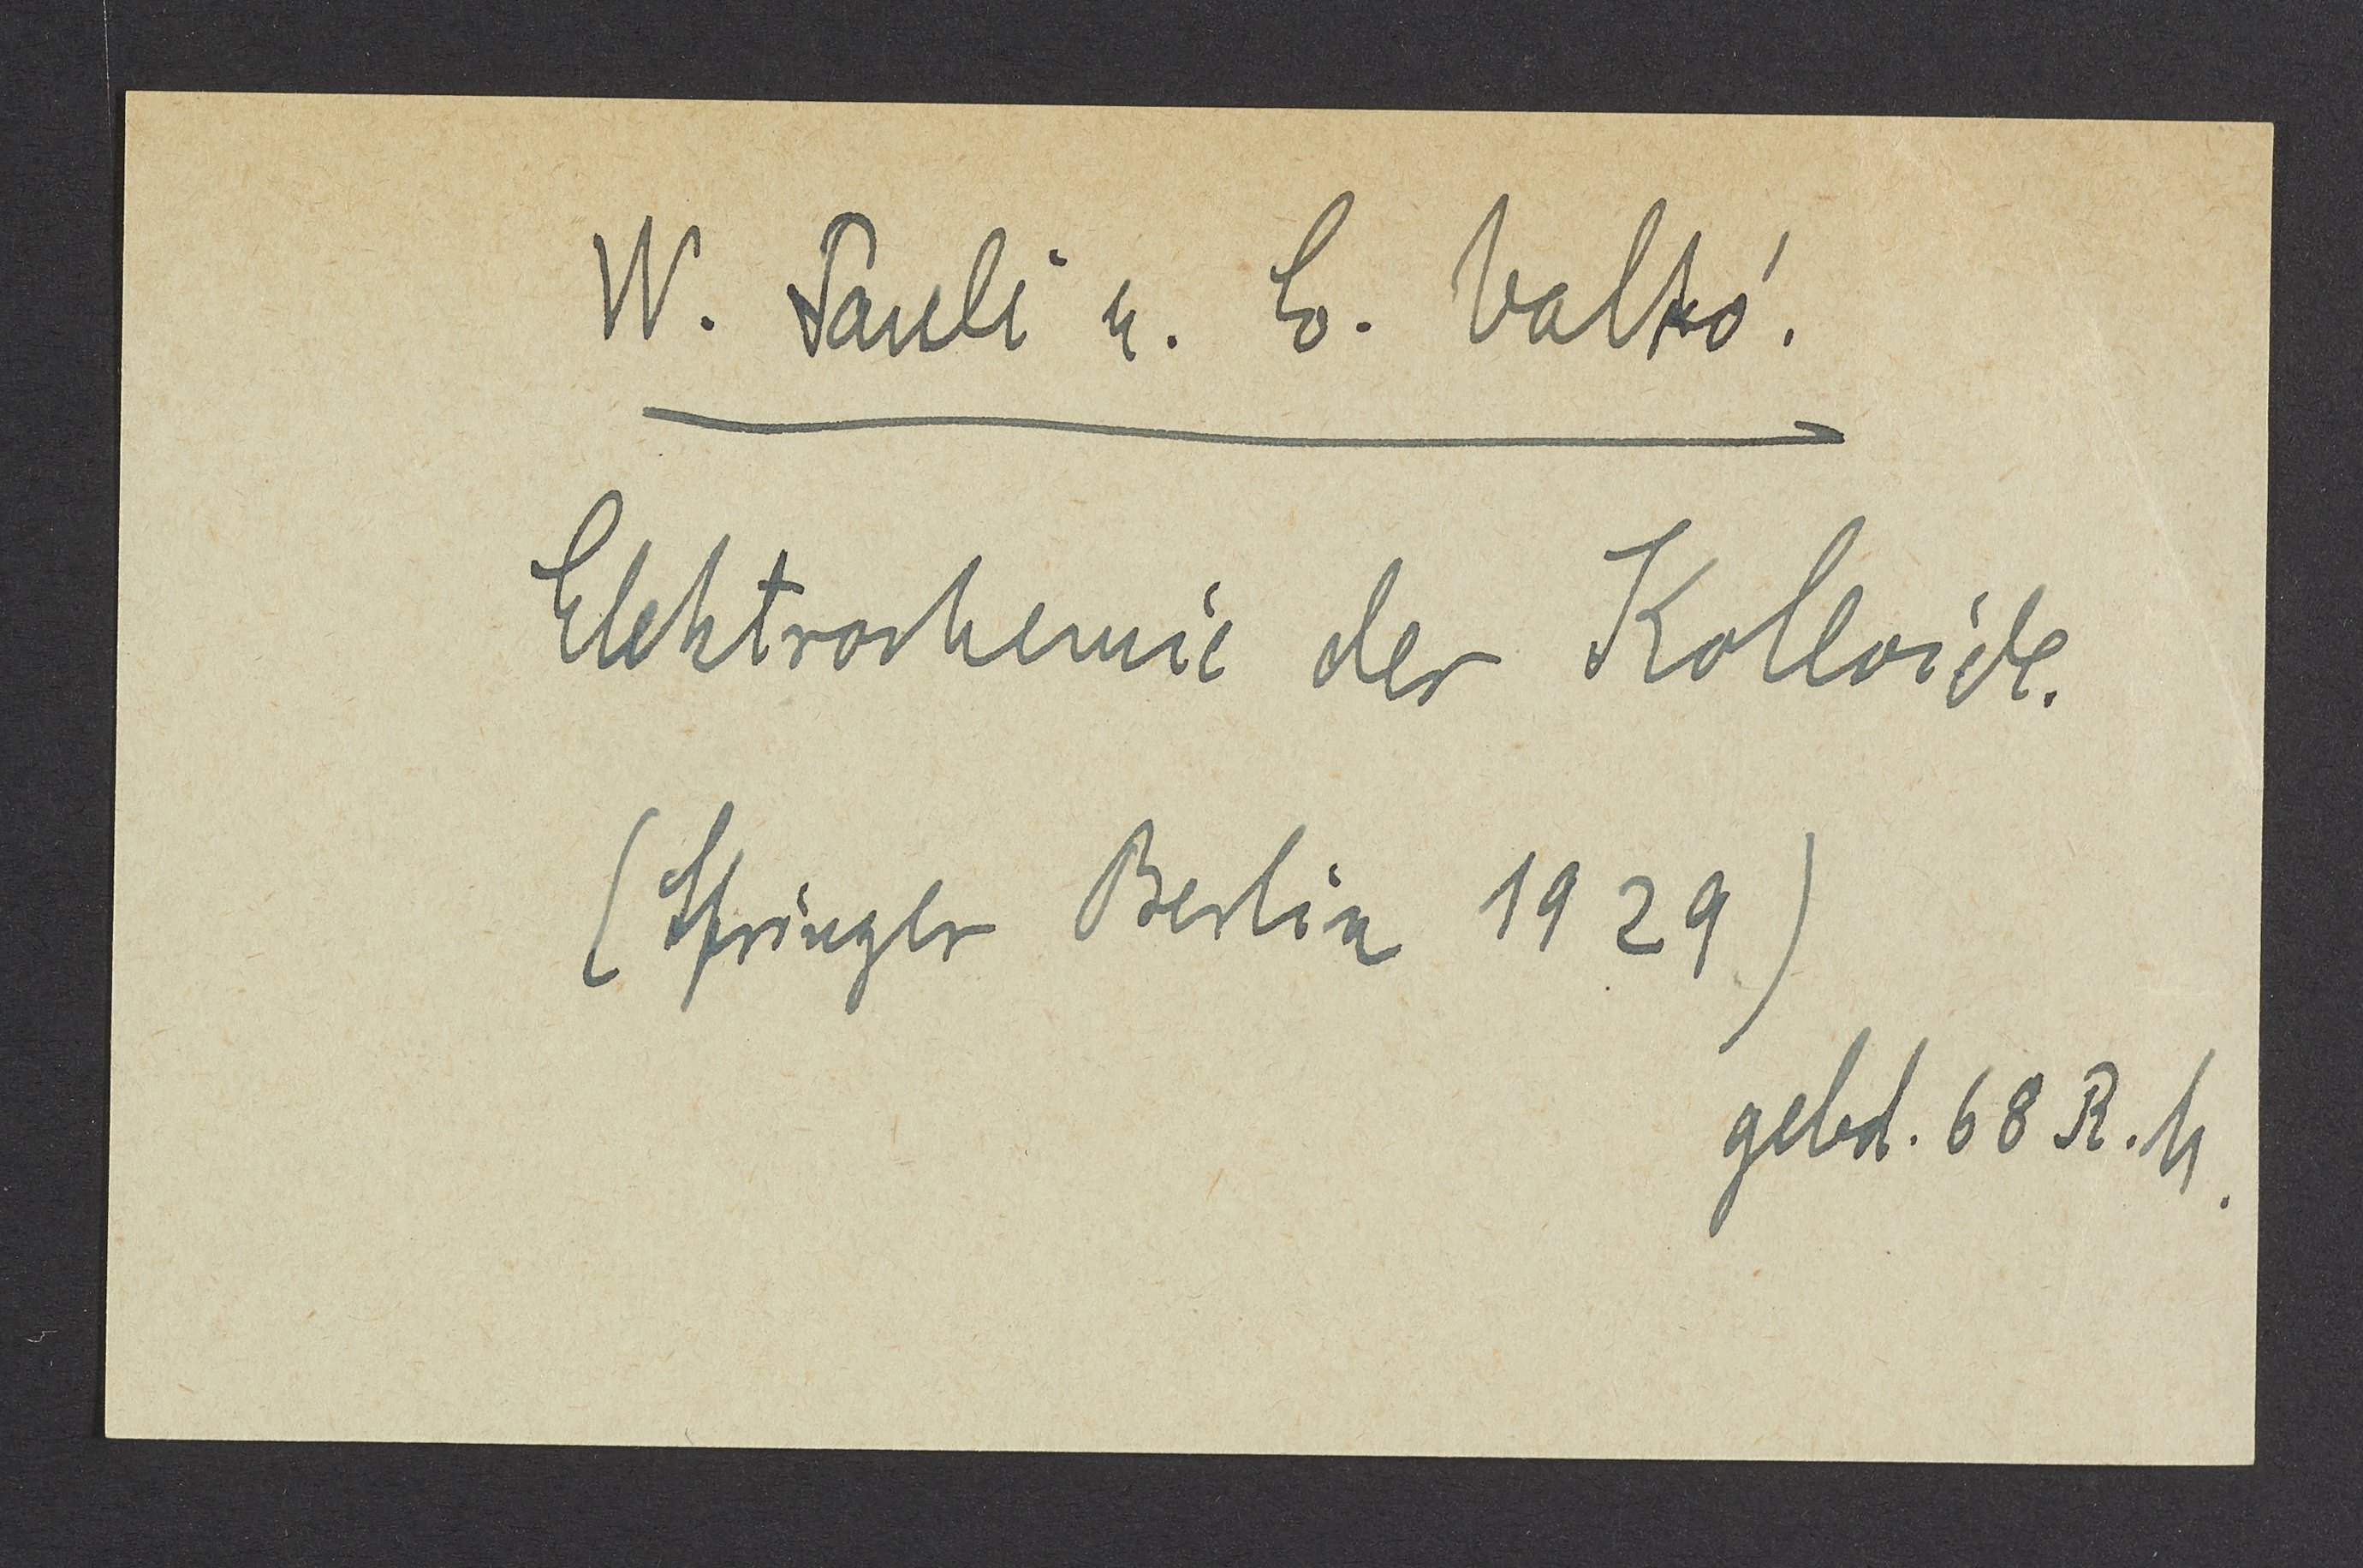 W. Pauli u. E. Valkó.
Elektrochemie der Kolloide.
(Springer Berlin 1929)
gebd. 68 R. M.